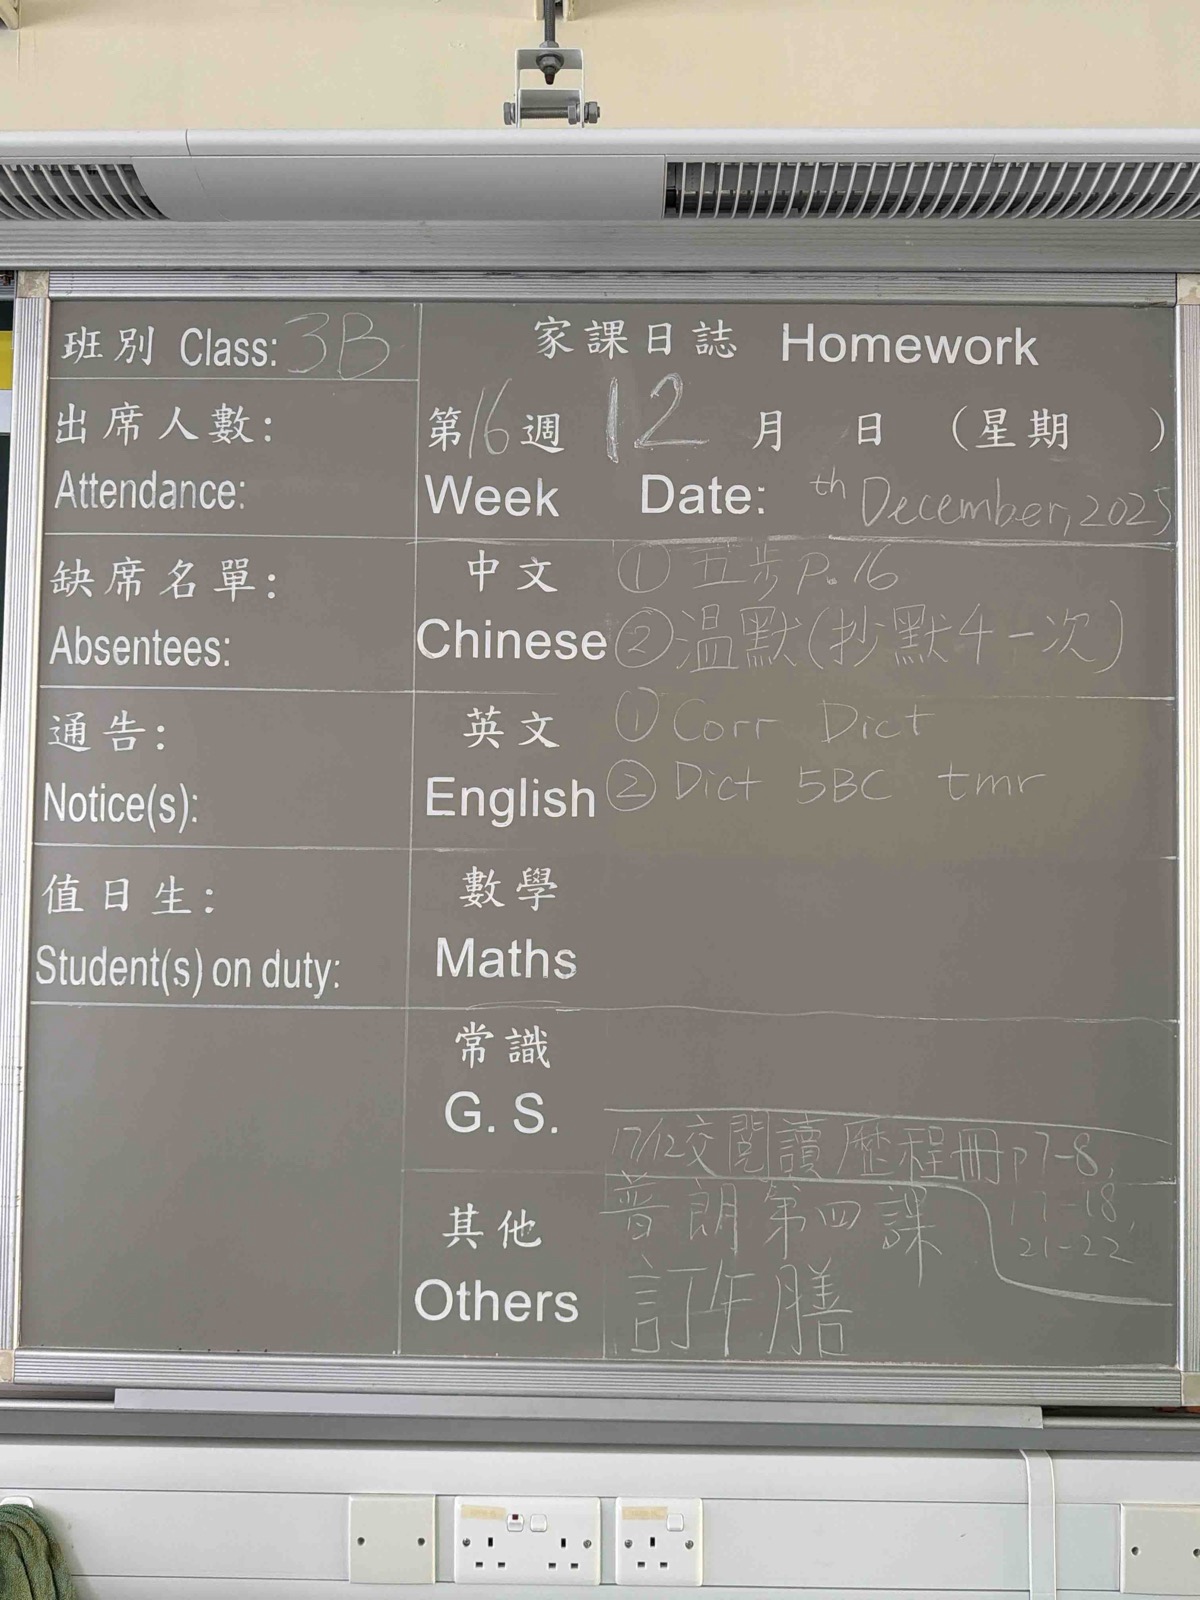 班別 Class: 3B
家課日誌 Homework
出席人數:
Attendance:
第16週 12 月 日 (星期 )
Week Date: th December, 2025
缺席名單:
Absentees:
中文
Chinese
① 五步 p.16
② 溫默(抄默4一次)
通告:
Notice(s):
英文
English
① Corr Dict
② Dict 5BC tmr
值日生:
Student(s) on duty:
數學
Maths
常識
G. S.
17/12交閱讀歷程冊p7-8,
17-18,
21-22
其他
Others
普朗第四課
訂午膳